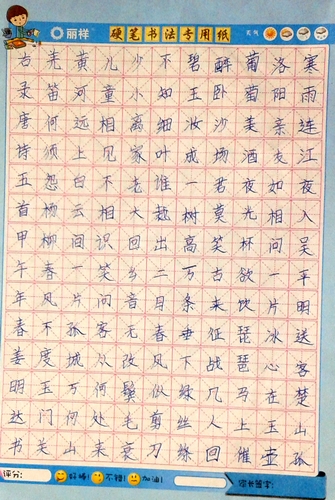 丽祥 硬笔书法专用纸
寒雨连江夜入吴平明送客楚山孤
洛阳亲友如相问一片冰心在玉壶
葡萄美酒夜光杯欲饮琵琶马上催
醉卧沙场君莫笑古来征战几人回
碧玉妆成一树高万条垂下绿丝绦
不知细叶谁裁出二月春风似剪刀
少小离家老大回乡音无改鬓毛衰
儿童相见不相识笑问客从何处来
黄河远上白云间一片孤城万仞山
羌笛何须怨杨柳春风不度玉门关
右录唐诗五首甲午年春姜明达书
评分: 好棒! 不错! 加油! 家长签字: